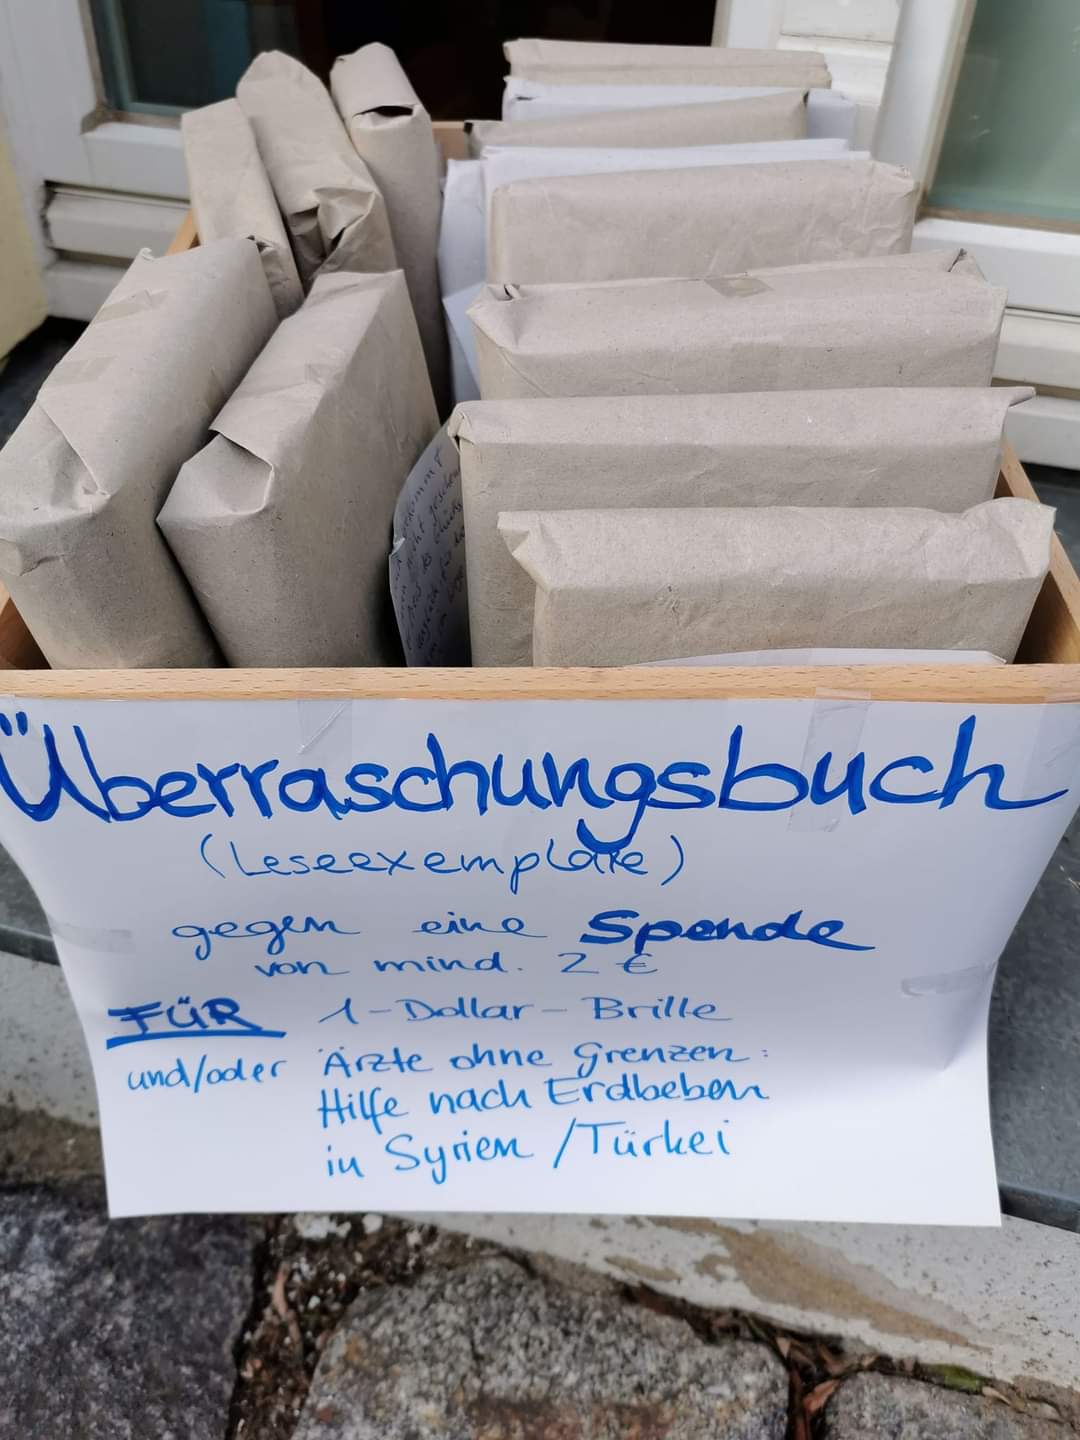 Überraschungsbuch
(Leseexemplare)
gegen eine Spende
von mind. 2 €
FÜR 1-Dollar-Brille
und/oder Ärzte ohne Grenzen:
Hilfe nach Erdbeben
in Syrien /Türkei